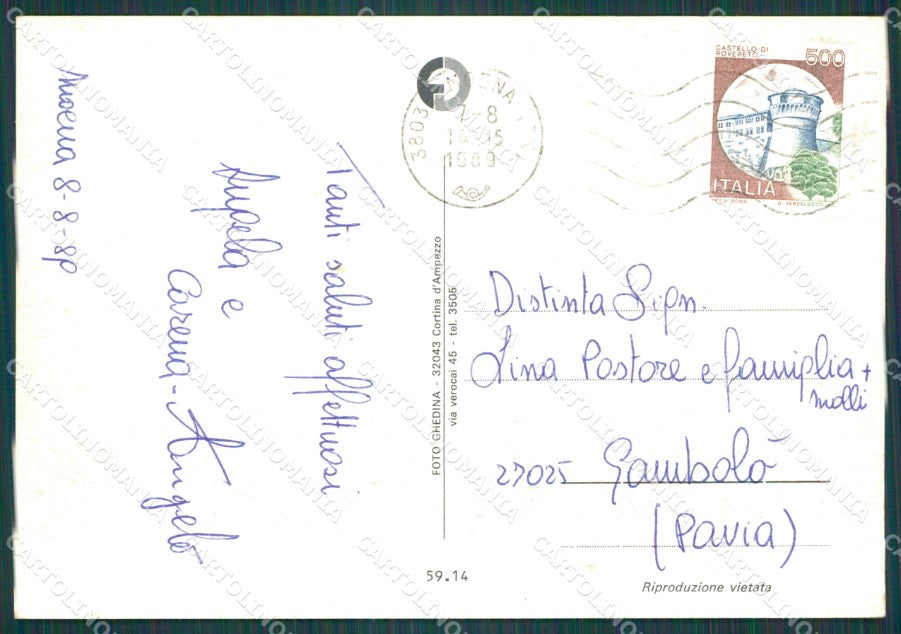 Moena 8-8-89
Tanti saluti affettuosi
Angela e
Carema - Angelo
FOTO GHEDINA - 32043 Cortina d'Ampezzo
via verocai 45 - tel. 3505
59.14
38035 MOENA
8-8
1989
CASTELLO DI
ROVERETO
500
ITALIA
Distinta Sign.
Lina Pastore e famiglia +
molli
27025 Gambolò
(Pavia)
Riproduzione vietata
CARTOLINOMANIA